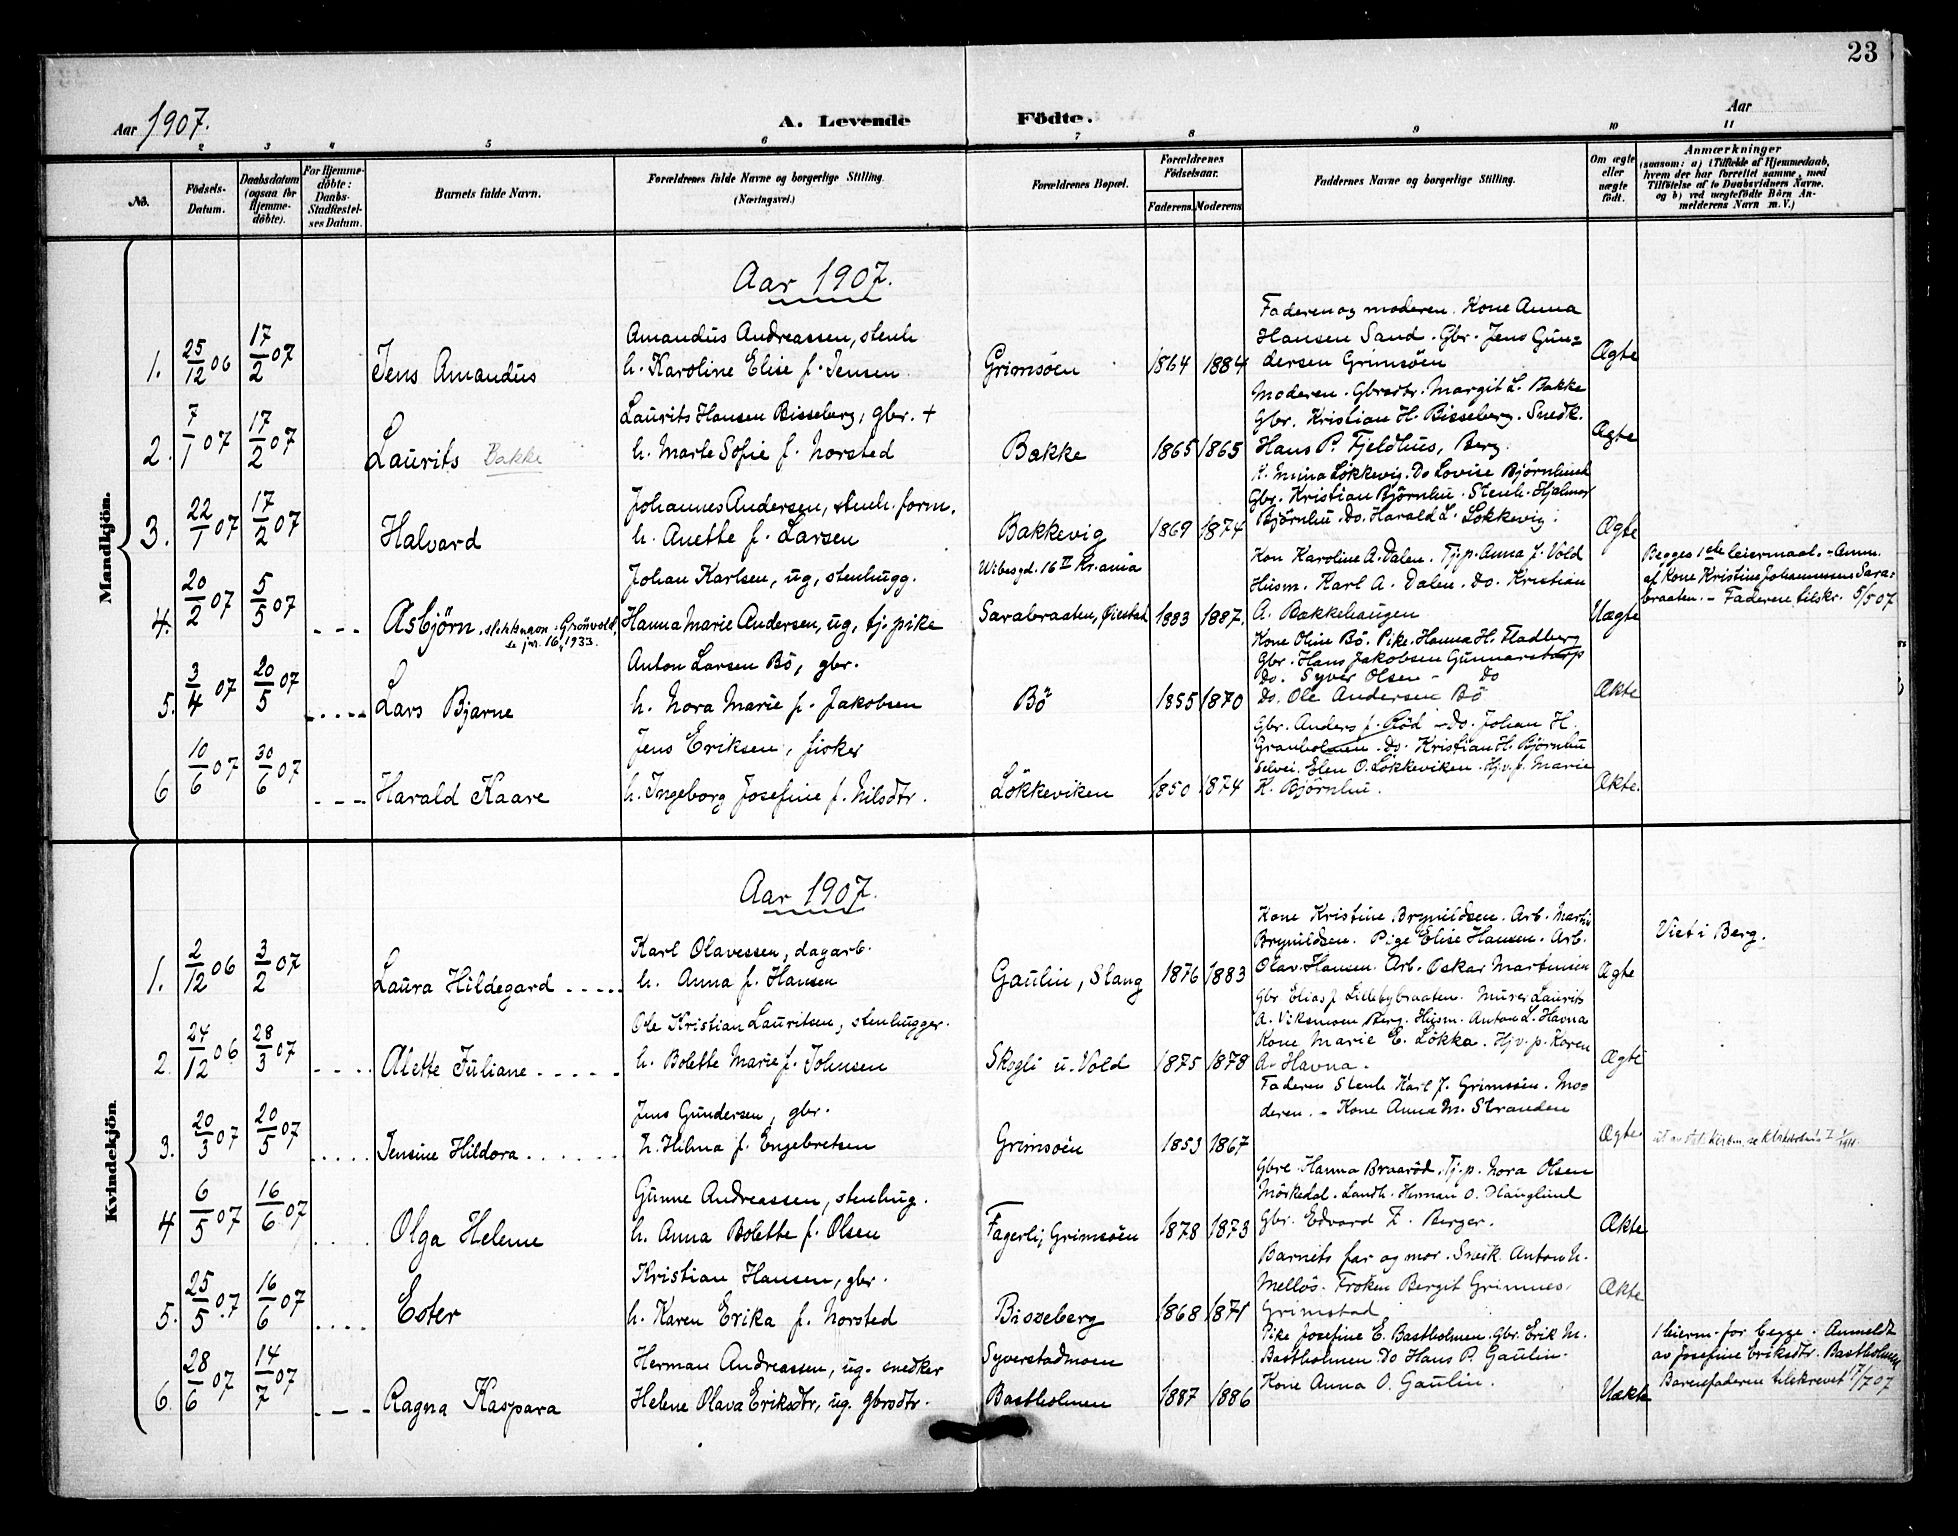 23
Aar 1907.
A. Levende Födte.
Aar
2 3 4 5 6 7 8 9 10 11
No.
Födsels-Datum.
Daabsdatum (ogsaa for Hjemme-döbte).
For Hjemme-döbte: Daabs-Stadfæstel-ses Datum.
Barnets fulde Navn.
Forældrenes fulde Navne og borgerlige Stilling.
(Næringsvei.)
Forældrenes Bopæl.
Forældrenes Födselsaar.
Faderens. Moderens.
Faddernes Navne og borgerlige Stilling.
Om ægte eller uægte födt.
Anmærkninger
(saasom: a) i Tilfælde af Hjemmedaab, hvem der har forrettet samme, med Tilföielse af to Daabsvidners Navne, og b) ved uægtefödte Börn An-melderens Navn m. V.)
Mandkjön.
Aar 1907.
1. 25/12 06 17/2 07 Jens Amandus
Amandus Andreassen, stenh
h. Karoline Elise f. Jensen
Grimsöen 1864 1884
Faderen og moderen. Kone Anna
Hansen Sand. Gbr. Jens Gun=
dersen Grimsöen
Ægte
2. 7/1 07 17/2 07 Laurits Bakke
Laurits Hansen Bisseberg, gbr. +
h. Marte Sofie f. Norsted
Bakke 1865 1865
Moderen. Gbrsdtr. Margit L. Bakke
Gbr. Kristian H. Bisseberg. Snedk.
Hans P. Fjeldhus, Berg.
Ægte
3. 22/1 07 17/2 07 Halvard
Johannes Andersen, stenh. form.
h. Anette f. Larsen
Bakkevig 1869 1874
K. Mina Lökkevig. Do Lovise Björnhus
Gbr. Kristian Björnhu. Stenh. Hjalmar
Björnhu. Do. Harald L. Lökkevig.
Ægte
4. 20/2 07 5/5 07 --- Asbjörn, slektsnavn: Grönvold,
se jnr. 16, 1933.
Johan Karlsen, ug, stenhugg.
Hanna Marie Andersen, ug, tj. pike
Wibesgd. 16 II Kr.ania
Sarabraaten, Öiestad 1883 1887.
Kon Karoline A. Dalen. Tj.p. Anna J. Vold
Husm. Karl A. Dalen. Do. Kristian
A. Bakkehaugen
Uægte
Begges 1ste leiermaal. - Anm.
af Kone Kristine Johannessen Sara=
braaten. - Faderen tilskr. 5/5 07
5. 3/4 07 20/5 07 Lars Bjarne
Anton Larsen Bö, gbr.
h. Nora Marie f. Jakobsen
Bö 1855 1870
Kone Oline Bö. Pike Hanna H. Fladberg
Gbr. Hans Jakobsen Gunnarstorp
Do. Syver Olsen - Do
Do. Ole Andersen Bö
Ækte
6 10/6 07 30/6 07 --- Harald Kaare
Jens Eriksen, fisker
h. Ingeborg Josefine f. Nilsdtr.
Lökkeviken 1850 1874
Gbr. Anders J. Röd - Do. Johan H.
Granholmen. Do. Kristian H. Björnhu
Selvei. Elen O. Lökkeviken. Hj.v.p. Marie
K. Björnhu.
Ækte.
Kvindekjön
Aar 1907.
1. 2/12 06 3/2 07 Laura Hildegard
Karl Olavessen, dagarb.
h. Anna f. Hansen
Gaulin, Stang 1876 1883
Kone Kristine Brynildsen. Arb. Martin
Brynildsen. Pige Elise Hansen. Arb.
Olav Hansen. Arb. Oskar Martinsen
Ægte
Viet i Berg.
2. 24/12 06 28/3 07 Alette Juliane
Ole Kristian Lauritsen, stenhugger.
h. Bolette Marie f. Johnsen
Skogli u. Vold 1875 1878
Gbr Elias J. Lillebybraaten. Murer Laurits
A. Viksmoen Berg. Husm. Anton L. Havna
Kone Marie E. Lökka. Hj.v.p. Karen
A. Havna.
Ægte
3. 20/3 07 20/5 07 Jensine Hildora
Jens Gundersen, gbr.
h. Hilma f. Engebretsen
Grimsöen 1853 1867
Faderen Stenh Karl J. Grimsöen. Mo=
deren. - Kone Anna M. Stranden
Ægte
4 6/5 07 16/6 07 Olga Helene
Gunne Andreassen, stenhug.
h. Anna Bolette f. Olsen
Fagerli, Grimsöen 1878 1873
Gbre Hanna Braaröd. Tj.p. Nora Olsen
Mörkedal. Landh. Herman O. Hauglund
Gbr. Edvard Z. Berger.
Ækte
5. 25/5 07 16/6 07 Ester
Kristian Hansen, gbr.
h. Karen Erika f. Norsted
Bisseberg 1868 1871
Barnets far og mor. Snek. Anton N.
Mellös. Fröken Bergit Grimnes.
Grimstad
Ækte
6. 28/6 07 14/7 07 --- Ragna Kaspara
Herman Andreassen, ug. snedker
Helene Olava Eriksdtr, ug. gbrsdtr.
Syverstadmoen
Bastholmen 1887 1886
Pike Josefine E. Bastholmen. Gbr. Erik M.
Bastholmen Do Hans P. Gaulin.
Kone Anna O. Gaulin.
Uækte
1 leierm. for begge. Anmeldt
av Josefine Eriksdtr. Bastholmen
Barnefaderen tilskrevet 17/7 07